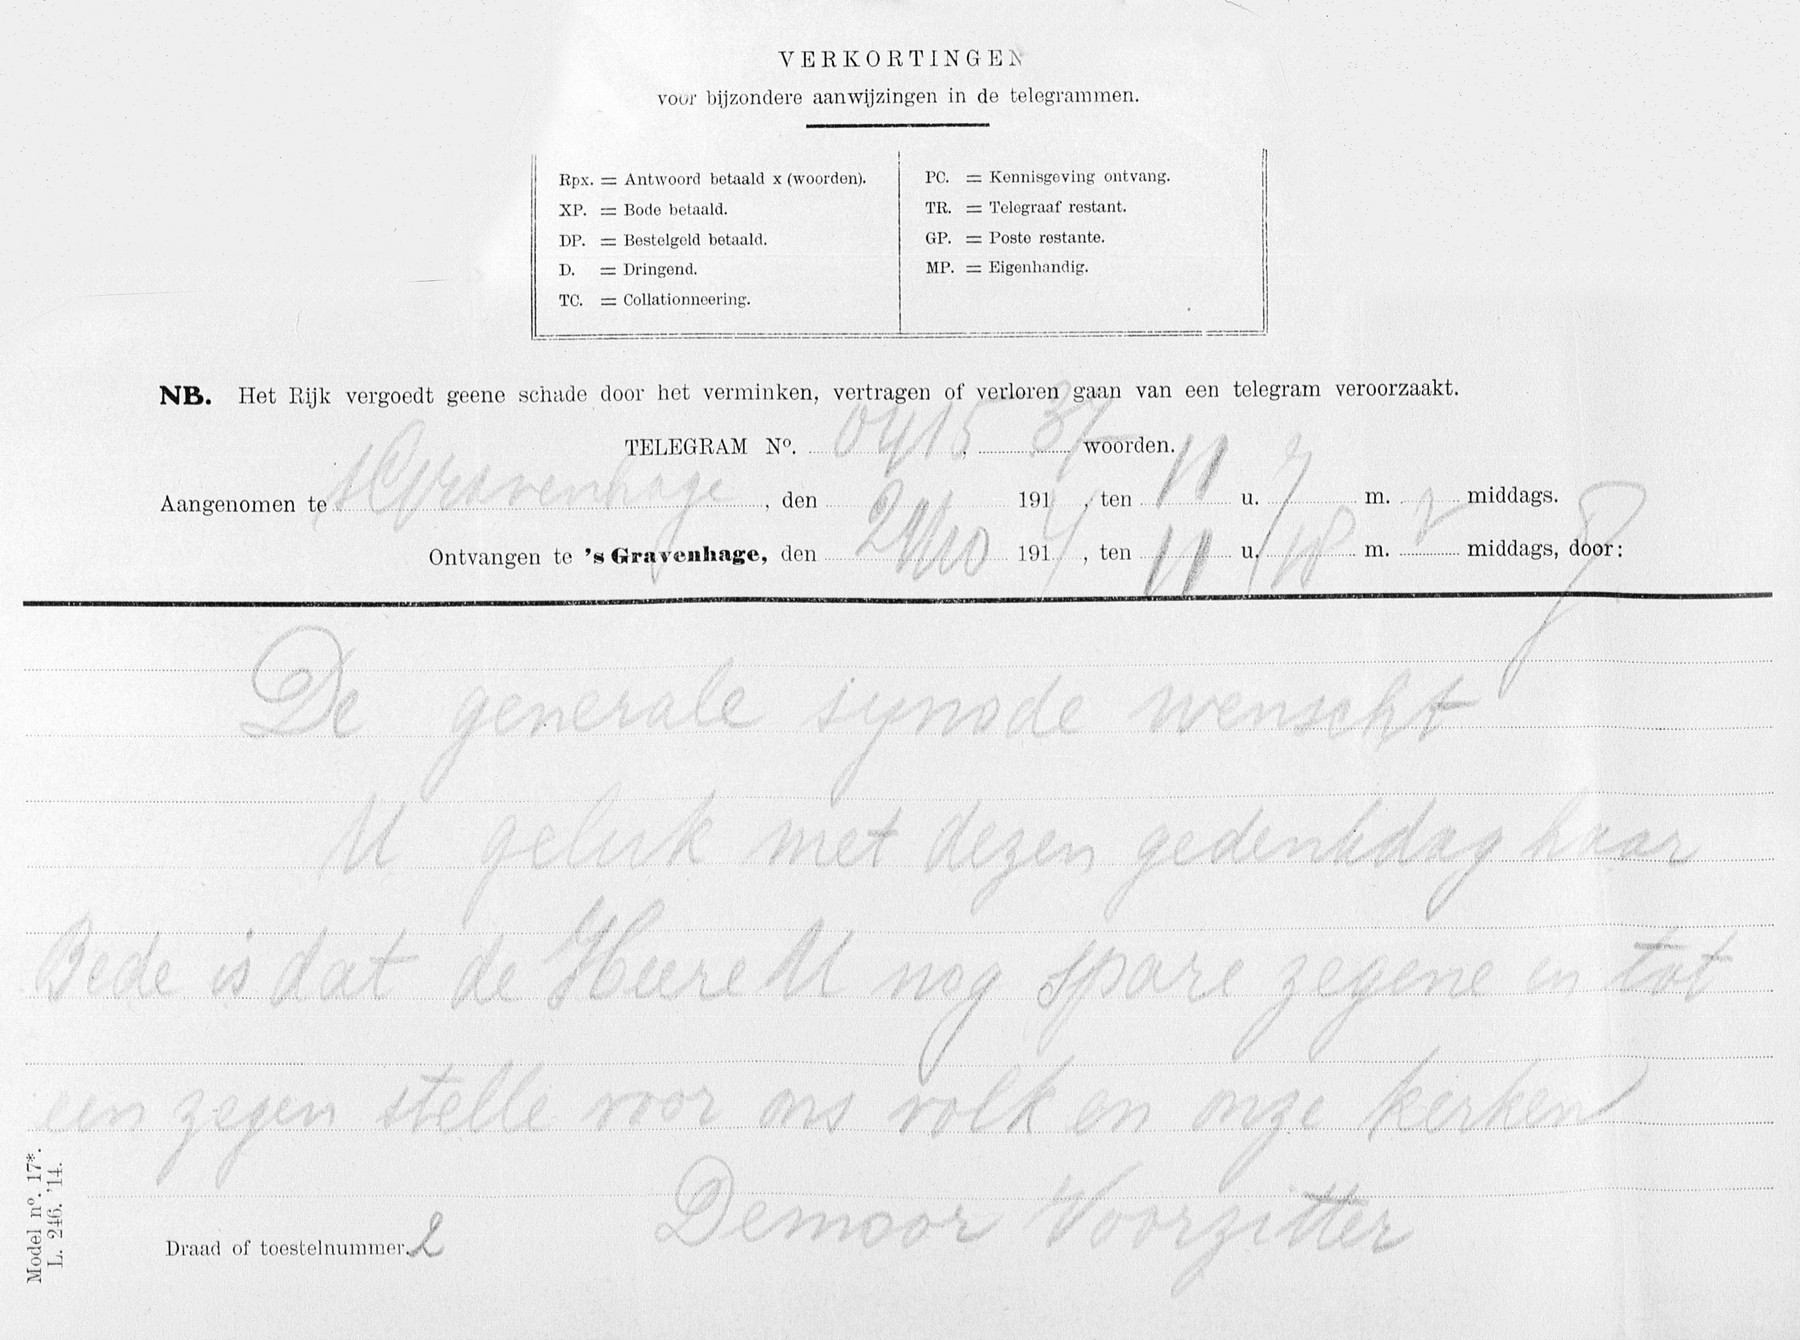 VERKORTINGEN
voor bijzondere aanwijzingen in de telegrammen.
Rpx. = Antwoord betaald x (woorden).
XP. = Bode betaald.
DP. = Bestelgeld betaald.
D. = Dringend.
TC. = Collationneering.
PC. = Kennisgeving ontvang.
TR. = Telegraaf restant.
GP. = Poste restante.
MP. = Eigenhandig.
NB. Het Rijk vergoedt geene schade door het verminken, vertragen of verloren gaan van een telegram veroorzaakt.
TELEGRAM No. 0415, 37 woorden.
Aangenomen te sGravenhage, den 191 , ten 11 u. 7 m. middags.
Ontvangen te 's Gravenhage, den 191 , ten 11 u. 18 m. middags, door:
De generale synode wenscht
U geluk met dezen gedenkdag haar
Bede is dat de Heere U nog spare zegene en tot
een zegen stelle voor ons volk en onze kerken
Demoor Voorzitter
Draad of toestelnummer. 2
Model no. 17*.
L. 246. '14.